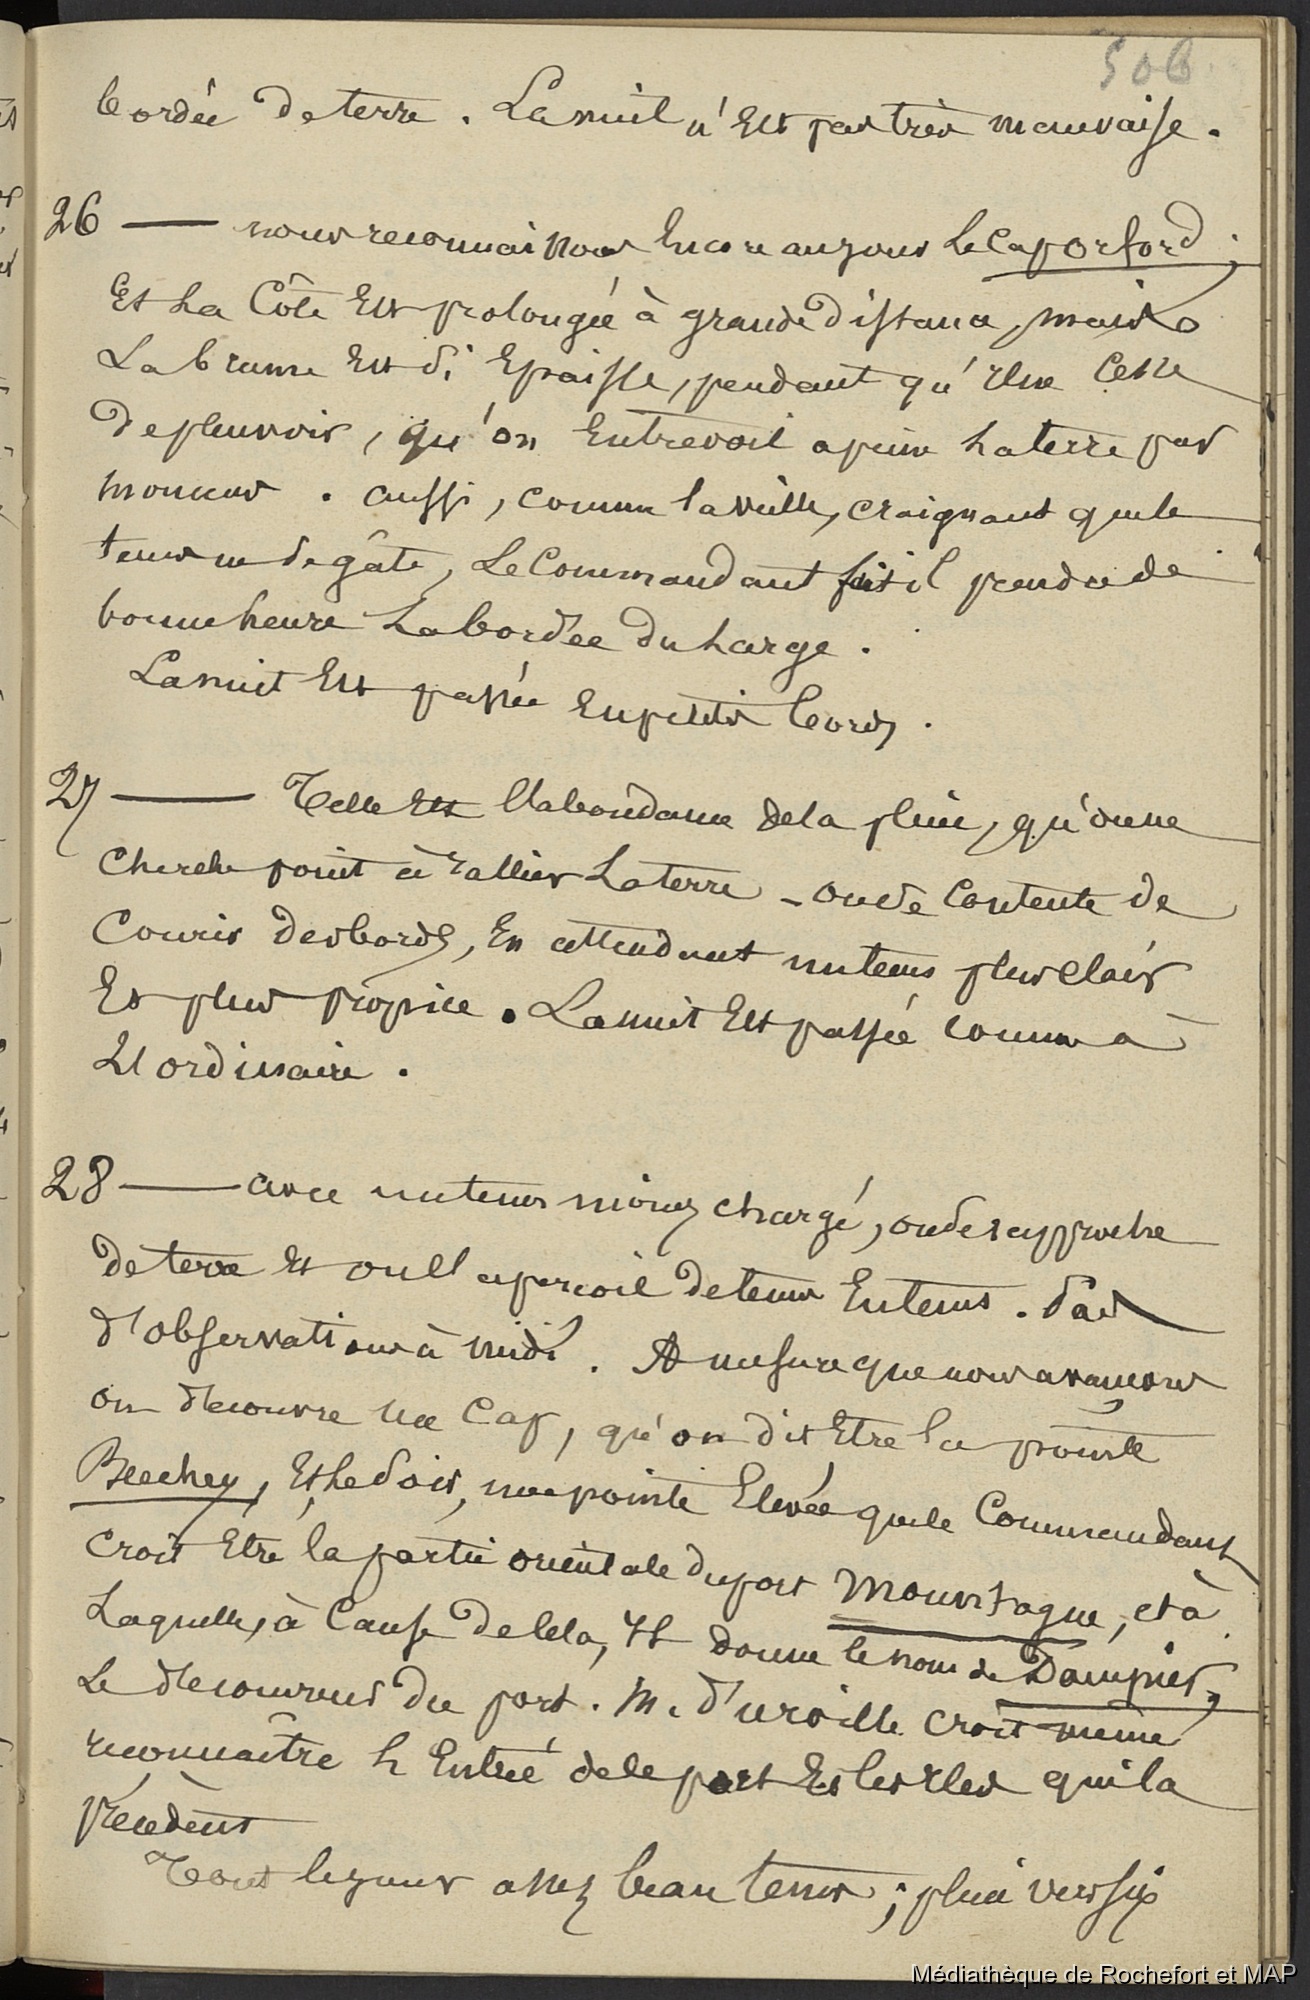 506
bordée de terre. La nuit n'Est pas très mauvaise.
26 — nous reconnaissons Encore aujour le Cap Orford;
Et La Côte Est prolongée à grande distance, mais
La brume Est si Epaisse, pendant qu'Elle Cesse
de pleuvoir, qu'on Entrevoit a peine La terre par
momens. aussi, comme la veille, craignant que le
tems ne se gâte, Le Commandant fait il prendre de
bonne heure La bordée du Large.
La nuit Est passée En petits bords.
27 — Telle Est l'abondance de la pluie, qu'on ne
Cherche point à rallier La terre - on se Contente de
Courir des bords, En attendant un tems plus clair
Et plus propice. La nuit Est passée comme à
L'ordinaire.
28 — avec un tems moins chargé, on se rapproche
De terre Et on l'aperçoit de tems En tems. Pas
d'observations à midi. A mesure que nous avançons
on découvre un Cap, qu'on dit Etre la pointe
Beechey, Et le soir, une pointe Elevée que le Commandant
croit Etre la partie orientale du port Mountague, et à
Laquelle, à Cause de Cela, Il donne le nom de Dampier,
Le découvreur du port. M. d'urville croit même
reconnaître L'Entrée de ce port Et les Iles qui la
précèdent
Tout le jour assez beau tems; pluie vers six
Médiathèque de Rochefort et MAP